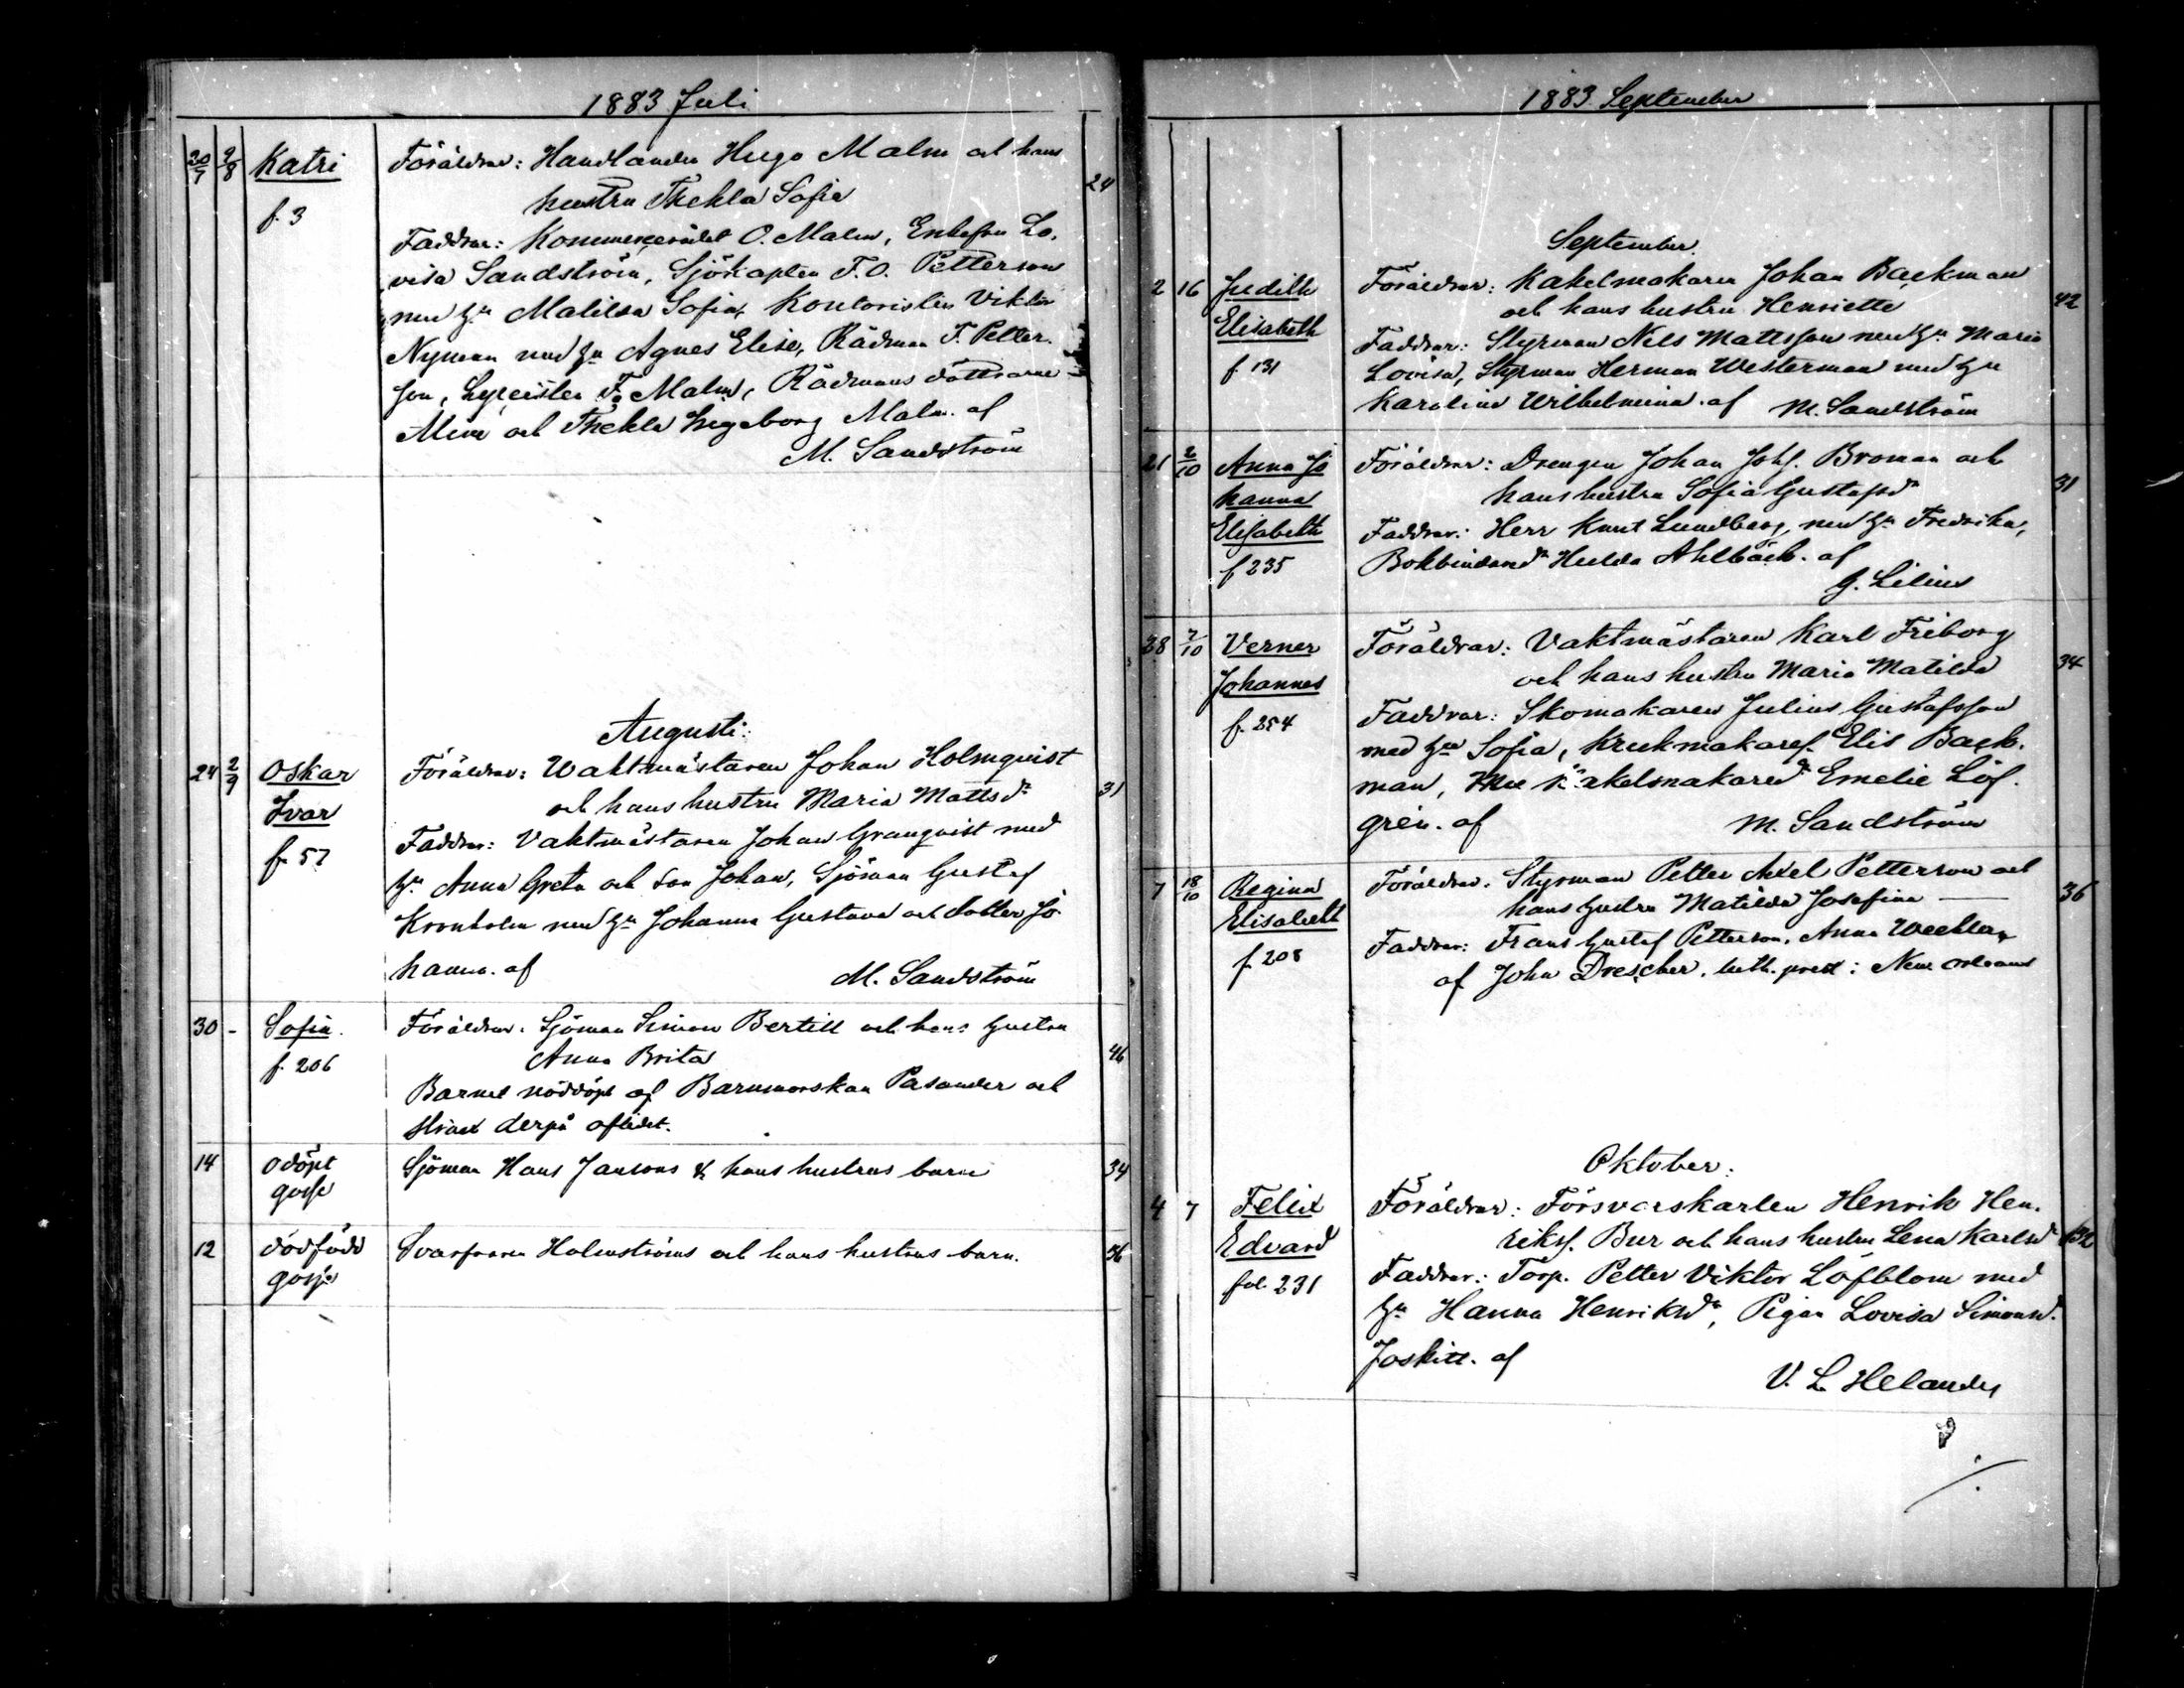 1883 Juli
20/7 2/8 Katri Föräldrar: Handlanden Hugo Malm och hans 24
f. 3 hustru Thekla Sofia
Faddrar: Kommerserådet O. Malm, Enkefru Lo-
visa Sandström, Sjökapten F. O. Petterson
med hu Matilda Sofia, Kontoristen Viktor
Nyman med hu Agnes Elise, Rådman F. Petter-
son, Lyceisten F. Malm, Rådmans döttrarne
och Thekla Ingeborg Malm. af
M. Sandström
Augusti:
24 2/9 Oskar Föräldrar: Waktmästaren Johan Holmqvist 31
Ivar och hans hustru Maria Mattsdr
f. 57 Faddrar: Vaktmästaren Johan Granqvist med
hu Anna Greta och son Johan, Sjöman Gustaf
Kronholm med hu Johanna Gustava och dotter Jo-
hanna. af M. Sandström
30 - Sofia. Föräldrar: Sjöman Simon Bertill och hans hustru
f. 206 Anna Brita 46
Barnet nöddöpt af Barnmorskan Pasander och
strax derpå aflidet.
14 Odöpt Sjöman Hans Jansons & hans hustrus barn 34
gosse
12 dödfödd Svarfvaren Holmströms och hans hustrus barn. 36
gosse
1883 September
September.
2 16 Judith Föräldrar: Kakelmakaren Johan Backman 42
Elisabeth och hans hustru Henriette
f. 131 Faddrar: Styrman Nils Mattsson med hu Maria
Lovisa, Styrman Herman Westerman med hu
Karolina Wilhelmina. af M. Sandström
21 2/10 Anna Jo Föräldrar: Drengen Johan Johs. Broman och 31
hanna hans hustru Sofia Gustafsdr
Elisabeth Faddrar: Herr Knut Lundberg, med hu Fredrika,
f. 235 Bokbindared. Hulda Ahlbäck. af
G. Lilius
28 7/10 Verner Föräldrar: Vaktmästaren Karl Friborg 34
Johannes och hans hustru Maria Matilda
f. 254 Faddrar: Skomakaren Julius Gustafsson
med hu Sofia, Krukmakares. Elis Back-
man, Kakelmakared. Emelie Löf-
gren. af M. Sandström
7 18/10 Regina Föräldrar: Styrman Petter Axel Petterson och 36
Elisabeth hans hustru Matilda Josefina
f. 208 Faddrar: Frans Gustaf Petterson, Anna
af John Drescher, luth. prest i New Orleans
Oktober:
4 7 Felix Föräldrar: Försvarskarlen Henrik Hen-
Edvard rikss. Bur och hans hustru Lena Karlsdr 32
fol. 231 Faddrar: Torp. Petter Viktor Löfblom med
hu Hanna Henriksdr, Pigan Lovisa Simonsd.
Joskitt. af
V. L. Helander